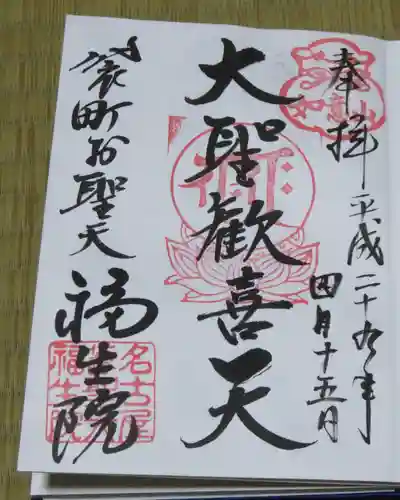 奉拝
平成二十九年
四月十五日
大聖歓喜天
袋町お聖天
福生院
如意山
名古屋
福生院